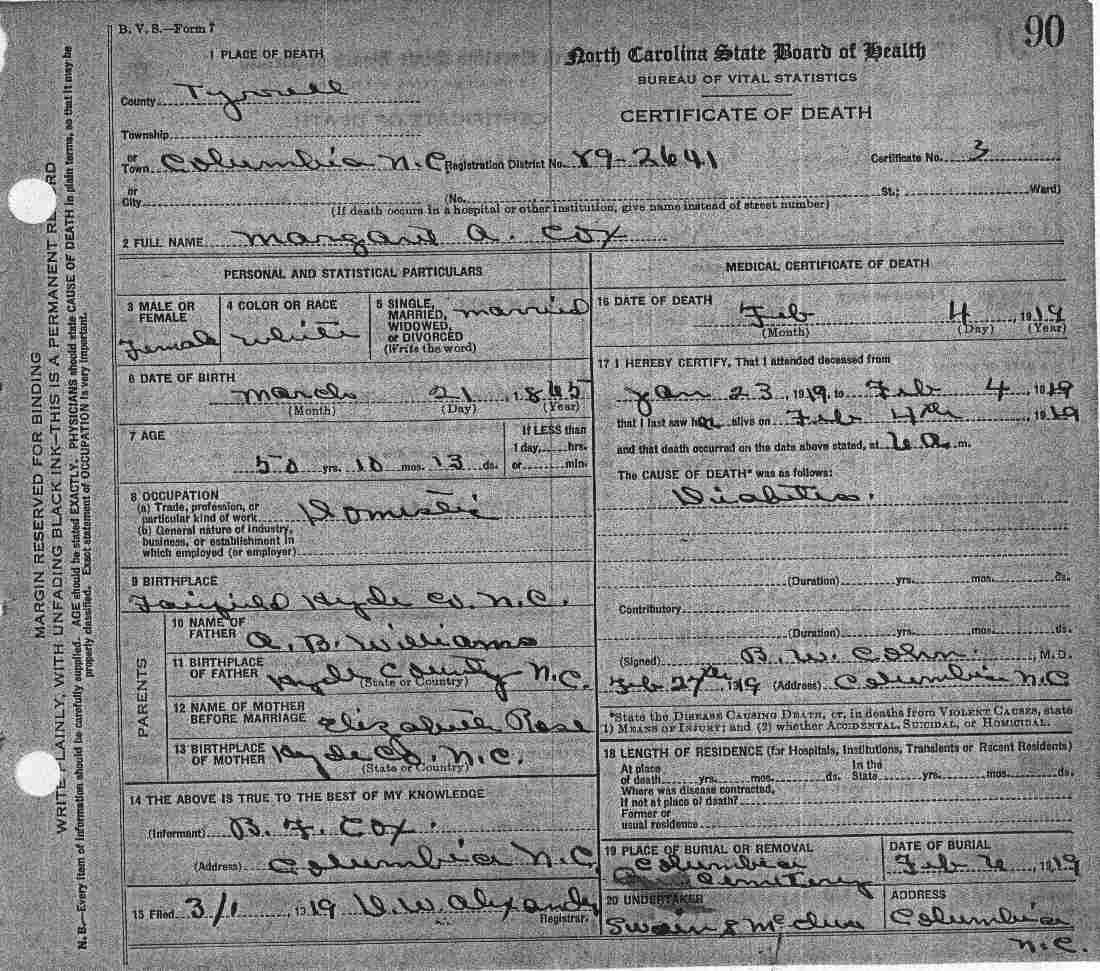 B. V. S.—Form 7
90
1 PLACE OF DEATH
North Carolina State Board of Health
BUREAU OF VITAL STATISTICS
CERTIFICATE OF DEATH
County Tyrrell
Township
or Town Columbia N.C. Registration District No. 89-2641 Certificate No. 3
or City (No. St.; Ward)
(If death occurs in a hospital or other institution, give name instead of street number)
2 FULL NAME Margaret A. Cox
PERSONAL AND STATISTICAL PARTICULARS
3 MALE OR FEMALE Female
4 COLOR OR RACE White
5 SINGLE, MARRIED, WIDOWED, or DIVORCED (Write the word) married
6 DATE OF BIRTH
March 21, 1865
(Month) (Day) (Year)
7 AGE
If LESS than 1 day, hrs. or min.
50 yrs. 10 mos. 13 ds.
8 OCCUPATION
(a) Trade, profession, or particular kind of work Domestic
(b) General nature of industry, business, or establishment in which employed (or employer)
9 BIRTHPLACE
Fairfield Hyde Co. N.C.
PARENTS
10 NAME OF FATHER A. B. Williams
11 BIRTHPLACE OF FATHER (State or Country) Hyde County N.C.
12 NAME OF MOTHER BEFORE MARRIAGE Elizabeth Rose
13 BIRTHPLACE OF MOTHER (State or Country) Hyde Co. N.C.
14 THE ABOVE IS TRUE TO THE BEST OF MY KNOWLEDGE
(Informant) B. F. Cox.
(Address) Columbia N.C.
15 Filed 3/1, 1919 Alexander Registrar.
MEDICAL CERTIFICATE OF DEATH
16 DATE OF DEATH
Feb 4, 1919
(Month) (Day) (Year)
17 I HEREBY CERTIFY, That I attended deceased from
Jan 23, 1919, to Feb 4, 1919
that I last saw her alive on Feb 4th, 1919
and that death occurred on the date above stated, at a. m.
The CAUSE OF DEATH* was as follows:
Diabetes.
(Duration) yrs. mos. ds.
Contributory
(Duration) yrs. mos. ds.
(Signed) B. W. Cohn., M.D.
Feb 27th, 1919 (Address) Columbia N C
*State the DISEASE CAUSING DEATH, or, in deaths from VIOLENT CAUSES, state
1) MEANS OF INJURY; and (2) whether ACCIDENTAL, SUICIDAL, or HOMICIDAL.
18 LENGTH OF RESIDENCE (for Hospitals, Institutions, Transients or Recent Residents)
At place of death yrs. mos. ds. In the State yrs. mos. ds.
Where was disease contracted,
If not at place of death?
Former or usual residence
19 PLACE OF BURIAL OR REMOVAL
Columbia Cemetery
DATE OF BURIAL
Feb 1919
20 UNDERTAKER
Swain &
ADDRESS
Columbia N.C.
MARGIN RESERVED FOR BINDING
WRITE PLAINLY, WITH UNFADING BLACK INK—THIS IS A PERMANENT RECORD
N. B.—Every item of information should be carefully supplied. AGE should be stated EXACTLY. PHYSICIANS should state CAUSE OF DEATH in plain terms, so that it may be
properly classified. Exact statement of OCCUPATION is very important.